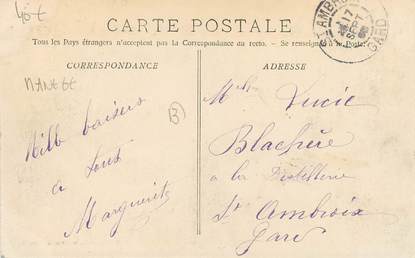 40 €
CARTE POSTALE
Tous les Pays étrangers n'acceptent pas la Correspondance au recto. - Se renseigner à la Poste.
CORRESPONDANCE
ADRESSE
MANEGE
B
Mille baisers
a tous
Marguerite
Mlle Lucie
Blachère
a la Distillerie
St Ambroix
Gard
ST AMBROIX
17
SEPT
GARD